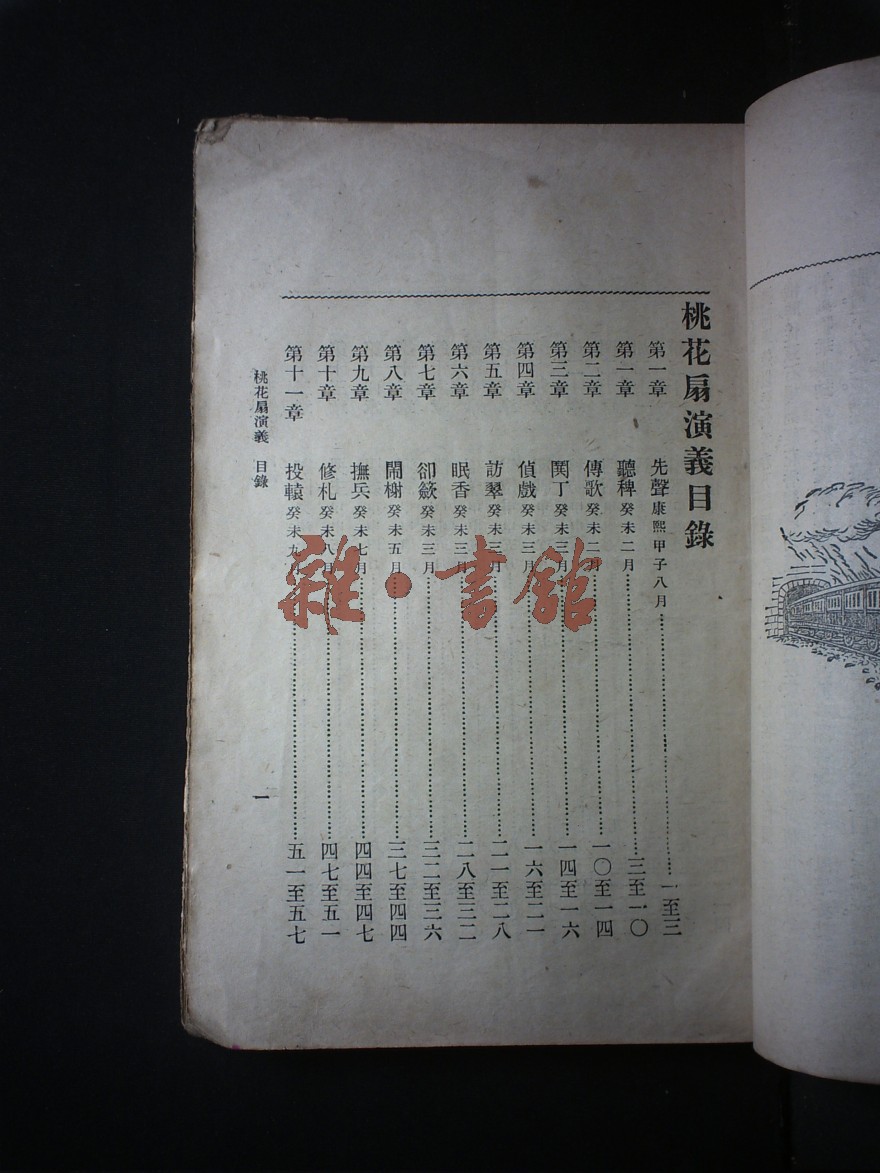 桃花扇演義目錄
第一章 先聲 康熙甲子八月 一至三
第一章 聽稗 癸未二月 三至一〇
第二章 傳歌 癸未二月 一〇至一四
第三章 鬨丁 癸未三月 一四至一六
第四章 偵戲 癸未三月 一六至二一
第五章 訪翠 癸未三月 二一至二八
第六章 眠香 癸未三月 二八至三二
第七章 卻籢 癸未三月 三二至三六
第八章 鬧榭 癸未五月 三七至四四
第九章 撫兵 癸未七月 四四至四七
第十章 修札 癸未八月 四七至五一
第十一章 投轅 癸未九月 五一至五七
桃花扇演義 目錄
一
雜·書館